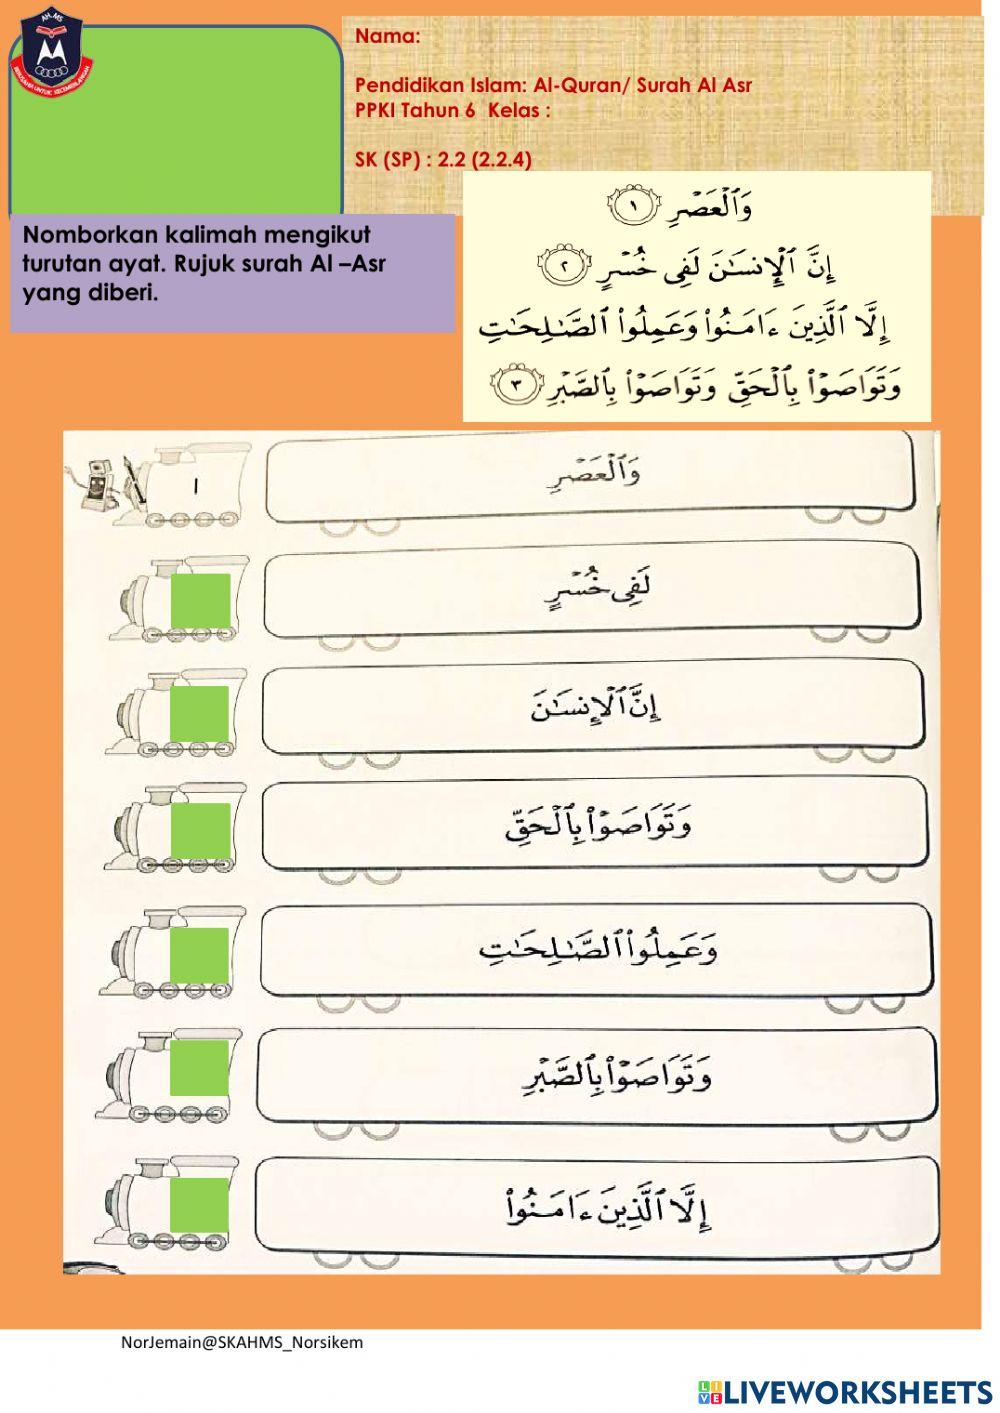 AH.MS
BERUSAHA UNTUK KECEMERLANGAN
Nama:
Pendidikan Islam: Al-Quran/ Surah Al Asr
PPKI Tahun 6 Kelas :
SK (SP) : 2.2 (2.2.4)
Nomborkan kalimah mengikut
turutan ayat. Rujuk surah Al –Asr
yang diberi.
وَٱلْعَصْرِ ١
إِنَّ ٱلْإِنسَـٰنَ لَفِى خُسْرٍ ٢
إِلَّا ٱلَّذِينَ ءَامَنُوا۟ وَعَمِلُوا۟ ٱلصَّـٰلِحَـٰتِ
وَتَوَاصَوْا۟ بِٱلْحَقِّ وَتَوَاصَوْا۟ بِٱلصَّبْرِ ٣
وَٱلْعَصْرِ
١
لَفِى خُسْرٍ
إِنَّ ٱلْإِنسَـٰنَ
وَتَوَاصَوْا۟ بِٱلْحَقِّ
وَعَمِلُوا۟ ٱلصَّـٰلِحَـٰتِ
وَتَوَاصَوْا۟ بِٱلصَّبْرِ
إِلَّا ٱلَّذِينَ ءَامَنُوا۟
NorJemain@SKAHMS_Norsikem
LIVE LIVEWORKSHEETS